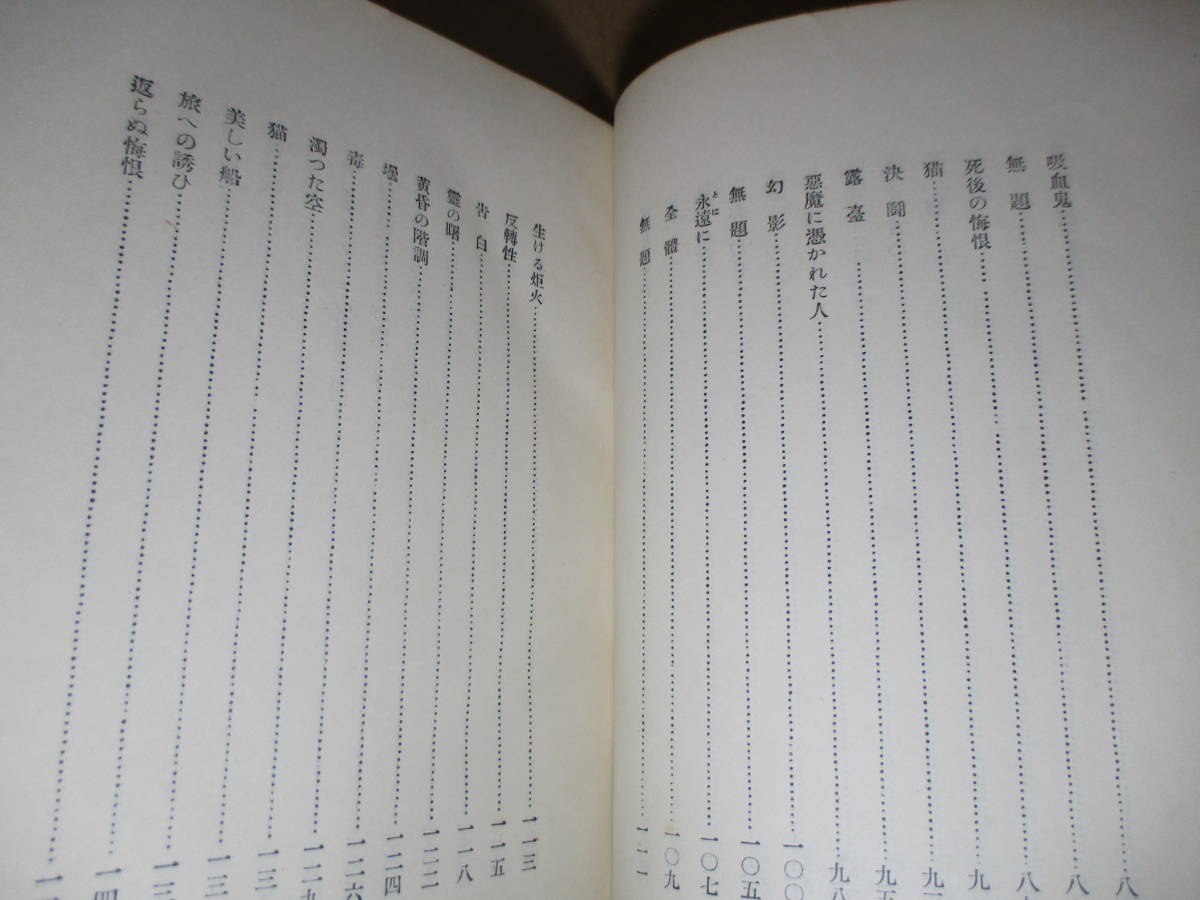 吸血鬼……八
無題……八
死後の悔恨……八
猫……九
決闘……九
露臺……九五
惡魔に憑かれた人……九八
幻影……一〇〇
無題……一〇五
とは
永遠に……一〇七
全體……一〇九
無題……一一一
生ける炬火……一一三
反轉性……一一五
告白……一一八
靈の曙……一二二
黄昏の階調……一二四
壜……一二六
毒……一二九
濁つた空……一三
猫……一三
美しい船……一三
旅への誘ひ……一四
返らぬ悔恨……一